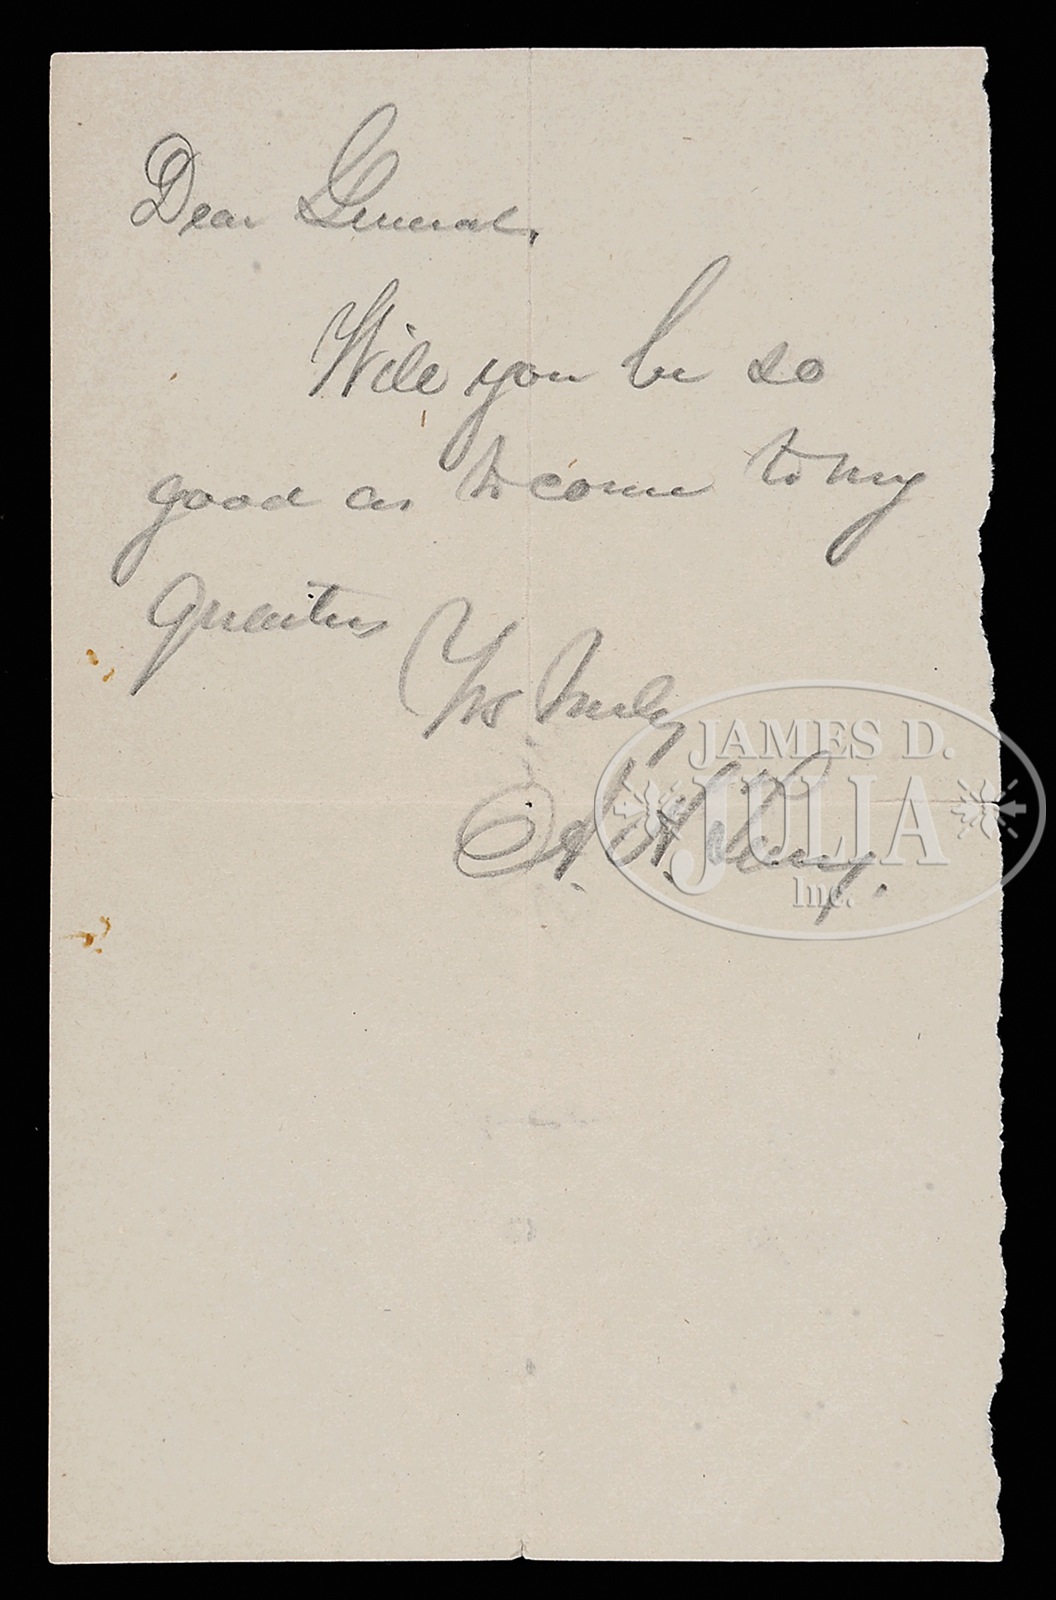 Dear General,
Will you be so
good as to come to my
quarters
Yrs Truly
A. H. Terry.
JAMES D.
JULIA
Inc.